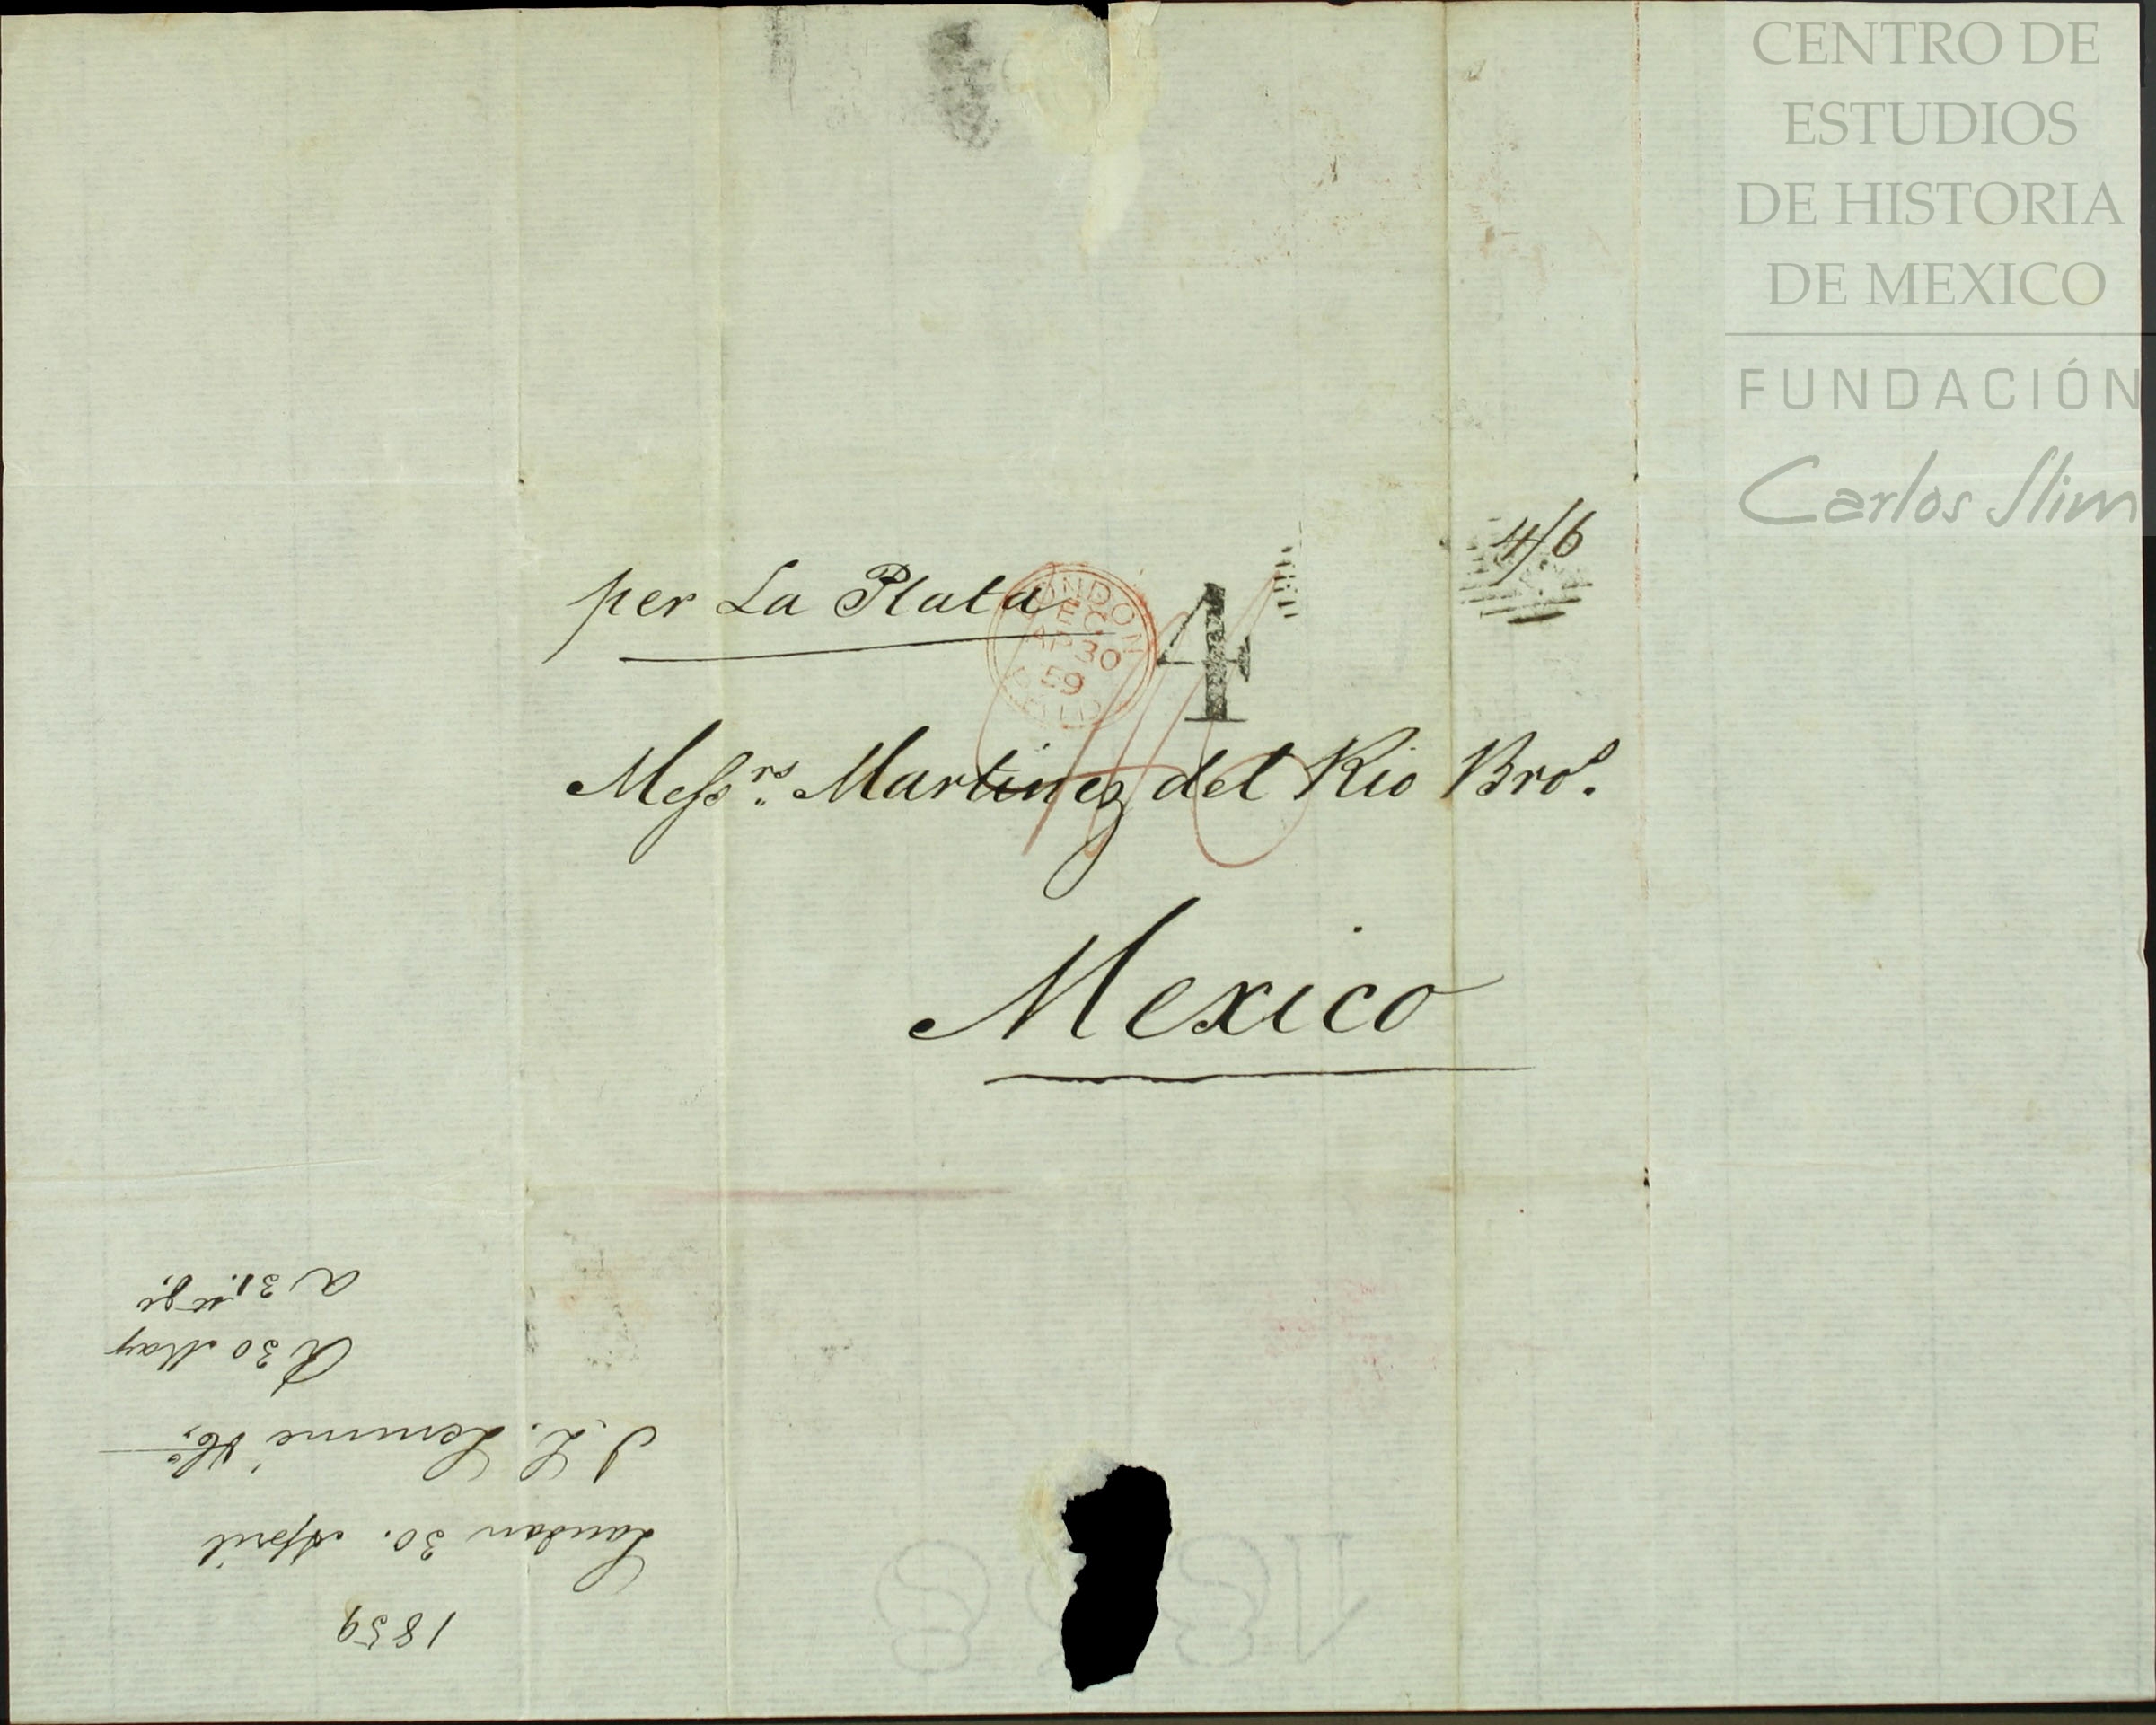 CENTRO DE
ESTUDIOS
DE HISTORIA
DE MEXICO
FUNDACIÓN
Carlos Slim
4/6
per La Plata
LONDON
EC
AP 30
59
PAID
4
Messrs. Martinez del Rio Bros.
Mexico
1859
London 30. April
J. L. Lemmé &Co,
R 30 May
a 31.